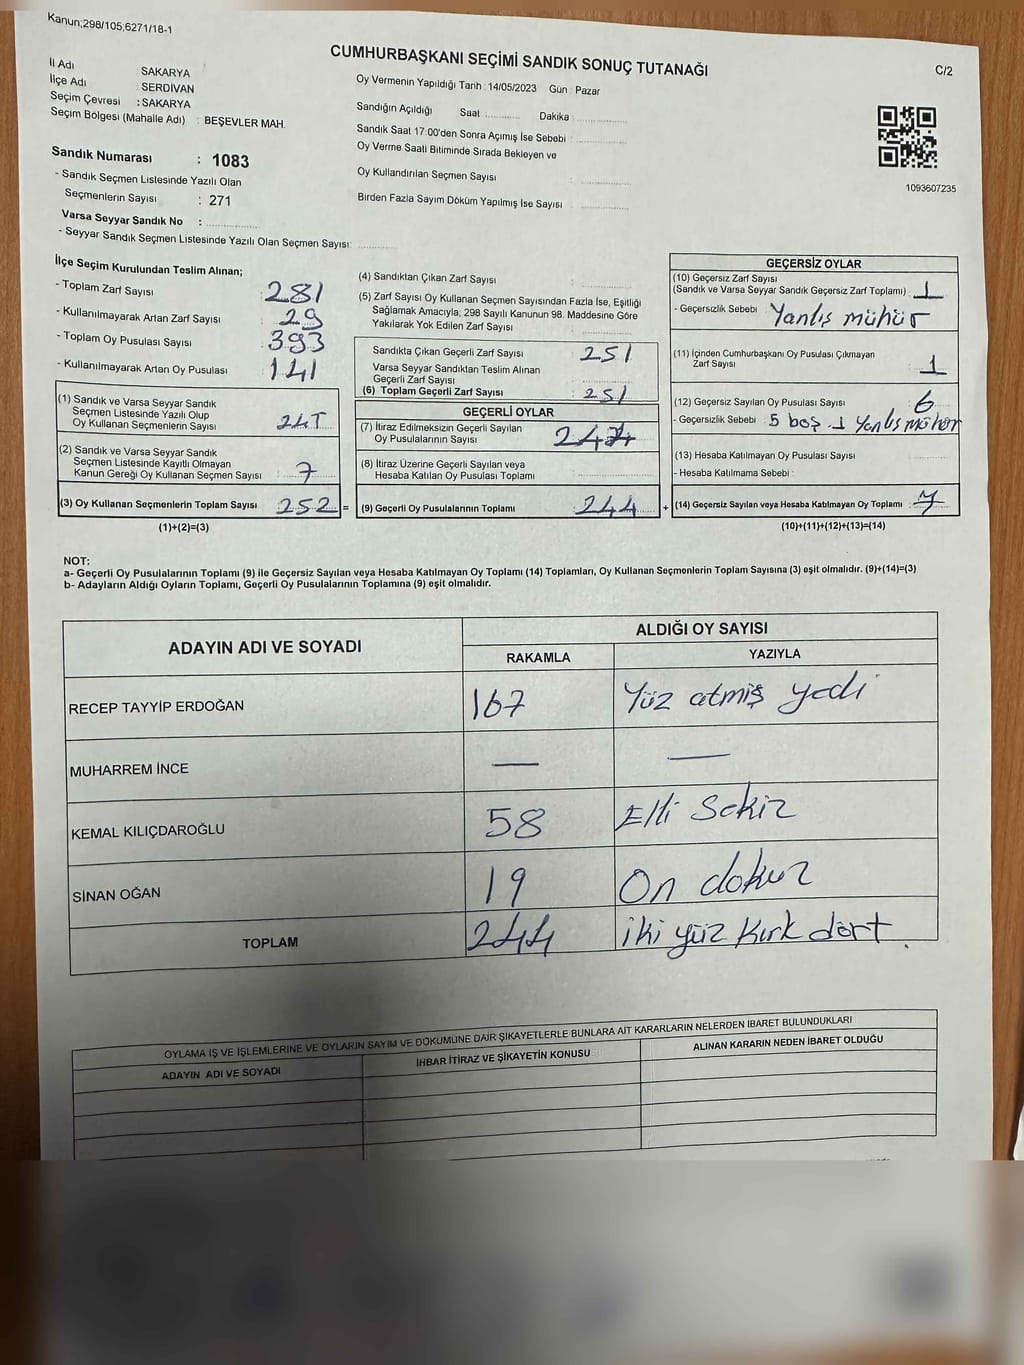 Kanun;298/105;6271/18-1
CUMHURBAŞKANI SEÇİMİ SANDIK SONUÇ TUTANAĞI
C/2
İl Adı : SAKARYA
İlçe Adı : SERDİVAN
Seçim Çevresi : SAKARYA
Seçim Bölgesi (Mahalle Adı) : BEŞEVLER MAH.
Sandık Numarası : 1083
- Sandık Seçmen Listesinde Yazılı Olan
Seçmenlerin Sayısı : 271
Varsa Seyyar Sandık No :
- Seyyar Sandık Seçmen Listesinde Yazılı Olan Seçmen Sayısı:
Oy Vermenin Yapıldığı Tarih : 14/05/2023 Gün : Pazar
Sandığın Açıldığı Saat Dakika :
Sandık Saat 17:00'den Sonra Açımış İse Sebebi :
Oy Verme Saati Bitiminde Sırada Bekleyen ve
Oy Kullandırılan Seçmen Sayısı :
Birden Fazla Sayım Döküm Yapılmış İse Sayısı :
1093607235
İlçe Seçim Kurulundan Teslim Alınan;
- Toplam Zarf Sayısı : 281
- Kullanılmayarak Artan Zarf Sayısı : 29
- Toplam Oy Pusulası Sayısı : 393
- Kullanılmayarak Artan Oy Pusulası : 141
(1) Sandık ve Varsa Seyyar Sandık
Seçmen Listesinde Yazılı Olup
Oy Kullanan Seçmenlerin Sayısı :
(2) Sandık ve Varsa Seyyar Sandık
Seçmen Listesinde Kayıtlı Olmayan
Kanun Gereği Oy Kullanan Seçmen Sayısı : 7
(3) Oy Kullanan Seçmenlerin Toplam Sayısı : 252 =
(1)+(2)=(3)
(4) Sandıktan Çıkan Zarf Sayısı :
(5) Zarf Sayısı Oy Kullanan Seçmen Sayısından Fazla İse, Eşitliği
Sağlamak Amacıyla; 298 Sayılı Kanunun 98. Maddesine Göre
Yakılarak Yok Edilen Zarf Sayısı :
Sandıkta Çıkan Geçerli Zarf Sayısı : 251
Varsa Seyyar Sandıktan Teslim Alınan
Geçerli Zarf Sayısı :
(6) Toplam Geçerli Zarf Sayısı : 251
GEÇERLİ OYLAR
(7) İtiraz Edilmeksizin Geçerli Sayılan
Oy Pusulalarının Sayısı : 244
(8) İtiraz Üzerine Geçerli Sayılan veya
Hesaba Katılan Oy Pusulası Toplamı :
(9) Geçerli Oy Pusulalarının Toplamı : 244 +
GEÇERSİZ OYLAR
(10) Geçersiz Zarf Sayısı
(Sandık ve Varsa Seyyar Sandık Geçersiz Zarf Toplamı) : 1
- Geçersizlik Sebebi : Yanlış mühür
(11) İçinden Cumhurbaşkanı Oy Pusulası Çıkmayan
Zarf Sayısı : 1
(12) Geçersiz Sayılan Oy Pusulası Sayısı : 6
- Geçersizlik Sebebi : 5 boş 1 Yanlış mühür
(13) Hesaba Katılmayan Oy Pusulası Sayısı :
- Hesaba Katılmama Sebebi :
(14) Geçersiz Sayılan veya Hesaba Katılmayan Oy Toplamı :
(10)+(11)+(12)+(13)=(14)
NOT:
a- Geçerli Oy Pusulalarının Toplamı (9) ile Geçersiz Sayılan veya Hesaba Katılmayan Oy Toplamı (14) Toplamları, Oy Kullanan Seçmenlerin Toplam Sayısına (3) eşit olmalıdır. (9)+(14)=(3)
b- Adayların Aldığı Oyların Toplamı, Geçerli Oy Pusulalarının Toplamına (9) eşit olmalıdır.
ADAYIN ADI VE SOYADI
ALDIĞI OY SAYISI
RAKAMLA YAZIYLA
RECEP TAYYİP ERDOĞAN 167 Yüz atmış yedi
MUHARREM İNCE — —
KEMAL KILIÇDAROĞLU 58 Elli Sekiz
SİNAN OĞAN 19 On dokuz
TOPLAM 244 iki yüz kırk dört.
OYLAMA İŞ VE İŞLEMLERİNE VE OYLARIN SAYIM VE DÖKÜMÜNE DAİR ŞİKAYETLERLE BUNLARA AİT KARARLARIN NELERDEN İBARET BULUNDUKLARI
ADAYIN ADI VE SOYADI İHBAR İTİRAZ VE ŞİKAYETİN KONUSU ALINAN KARARIN NEDEN İBARET OLDUĞU